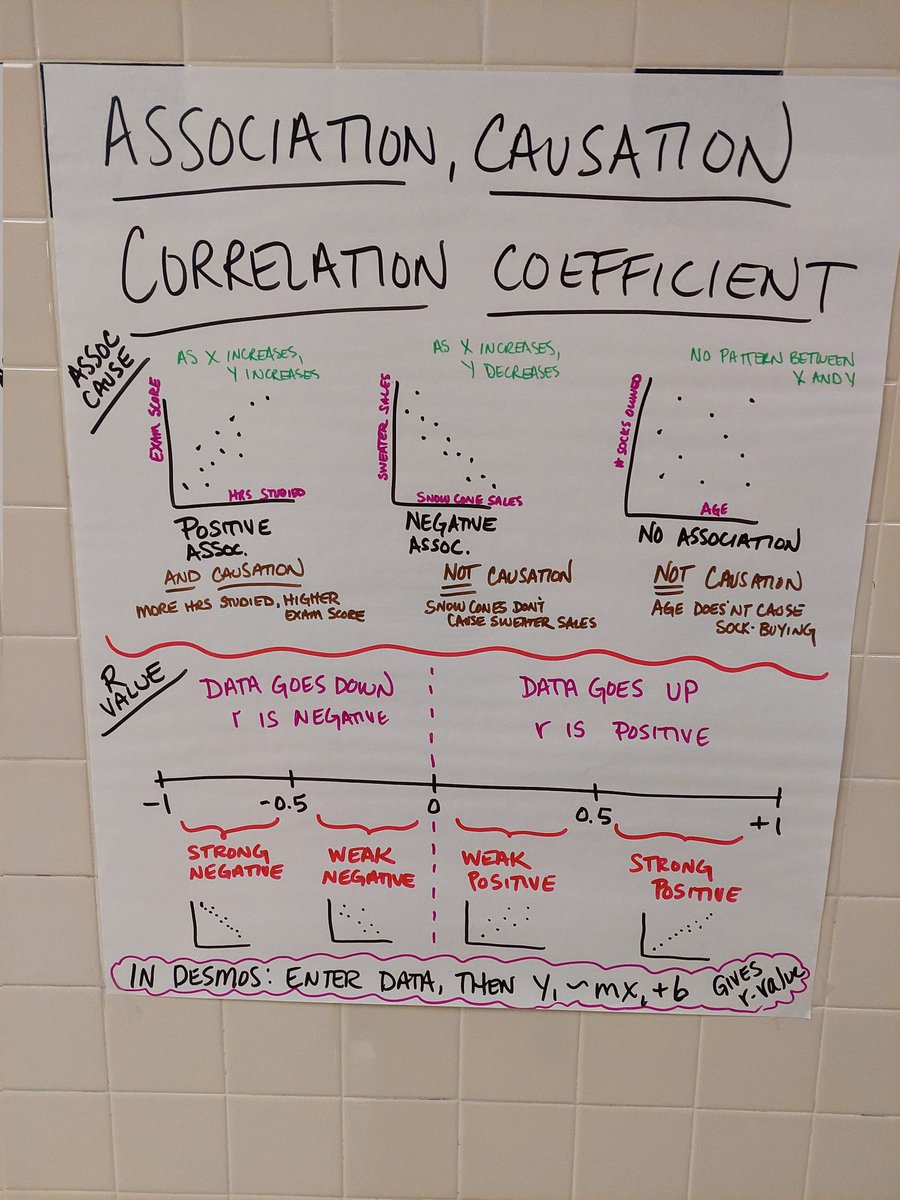 ASSOCIATION, CAUSATION
CORRELATION COEFFICIENT
ASSOC
CAUSE
AS X INCREASES,
Y INCREASES
EXAM SCORE
HRS STUDIED
POSITIVE
ASSOC.
AND CAUSATION
MORE HRS STUDIED, HIGHER
EXAM SCORE
AS X INCREASES,
Y DECREASES
SWEATER SALES
SNOW CONE SALES
NEGATIVE
ASSOC.
NOT CAUSATION
SNOW CONES DON'T
CAUSE SWEATER SALES
NO PATTERN BETWEEN
X AND Y
# SOCKS OWNED
AGE
NO ASSOCIATION
NOT CAUSATION
AGE DOES'NT CAUSE
SOCK-BUYING
R
VALUE
DATA GOES DOWN
r IS NEGATIVE
DATA GOES UP
r IS POSITIVE
-1 -0.5 0 0.5 +1
STRONG
NEGATIVE
WEAK
NEGATIVE
WEAK
POSITIVE
STRONG
POSITIVE
IN DESMOS: ENTER DATA, THEN y₁ ~ mx₁ + b GIVES
r-value